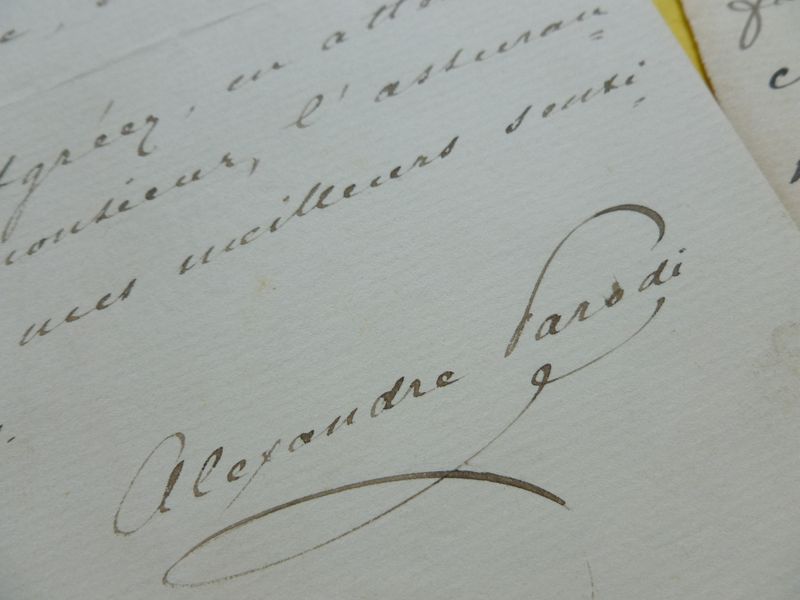 Agréez, en atte
monsieur, l'assuran=
mes meilleurs senti=
Alexandre Parodi